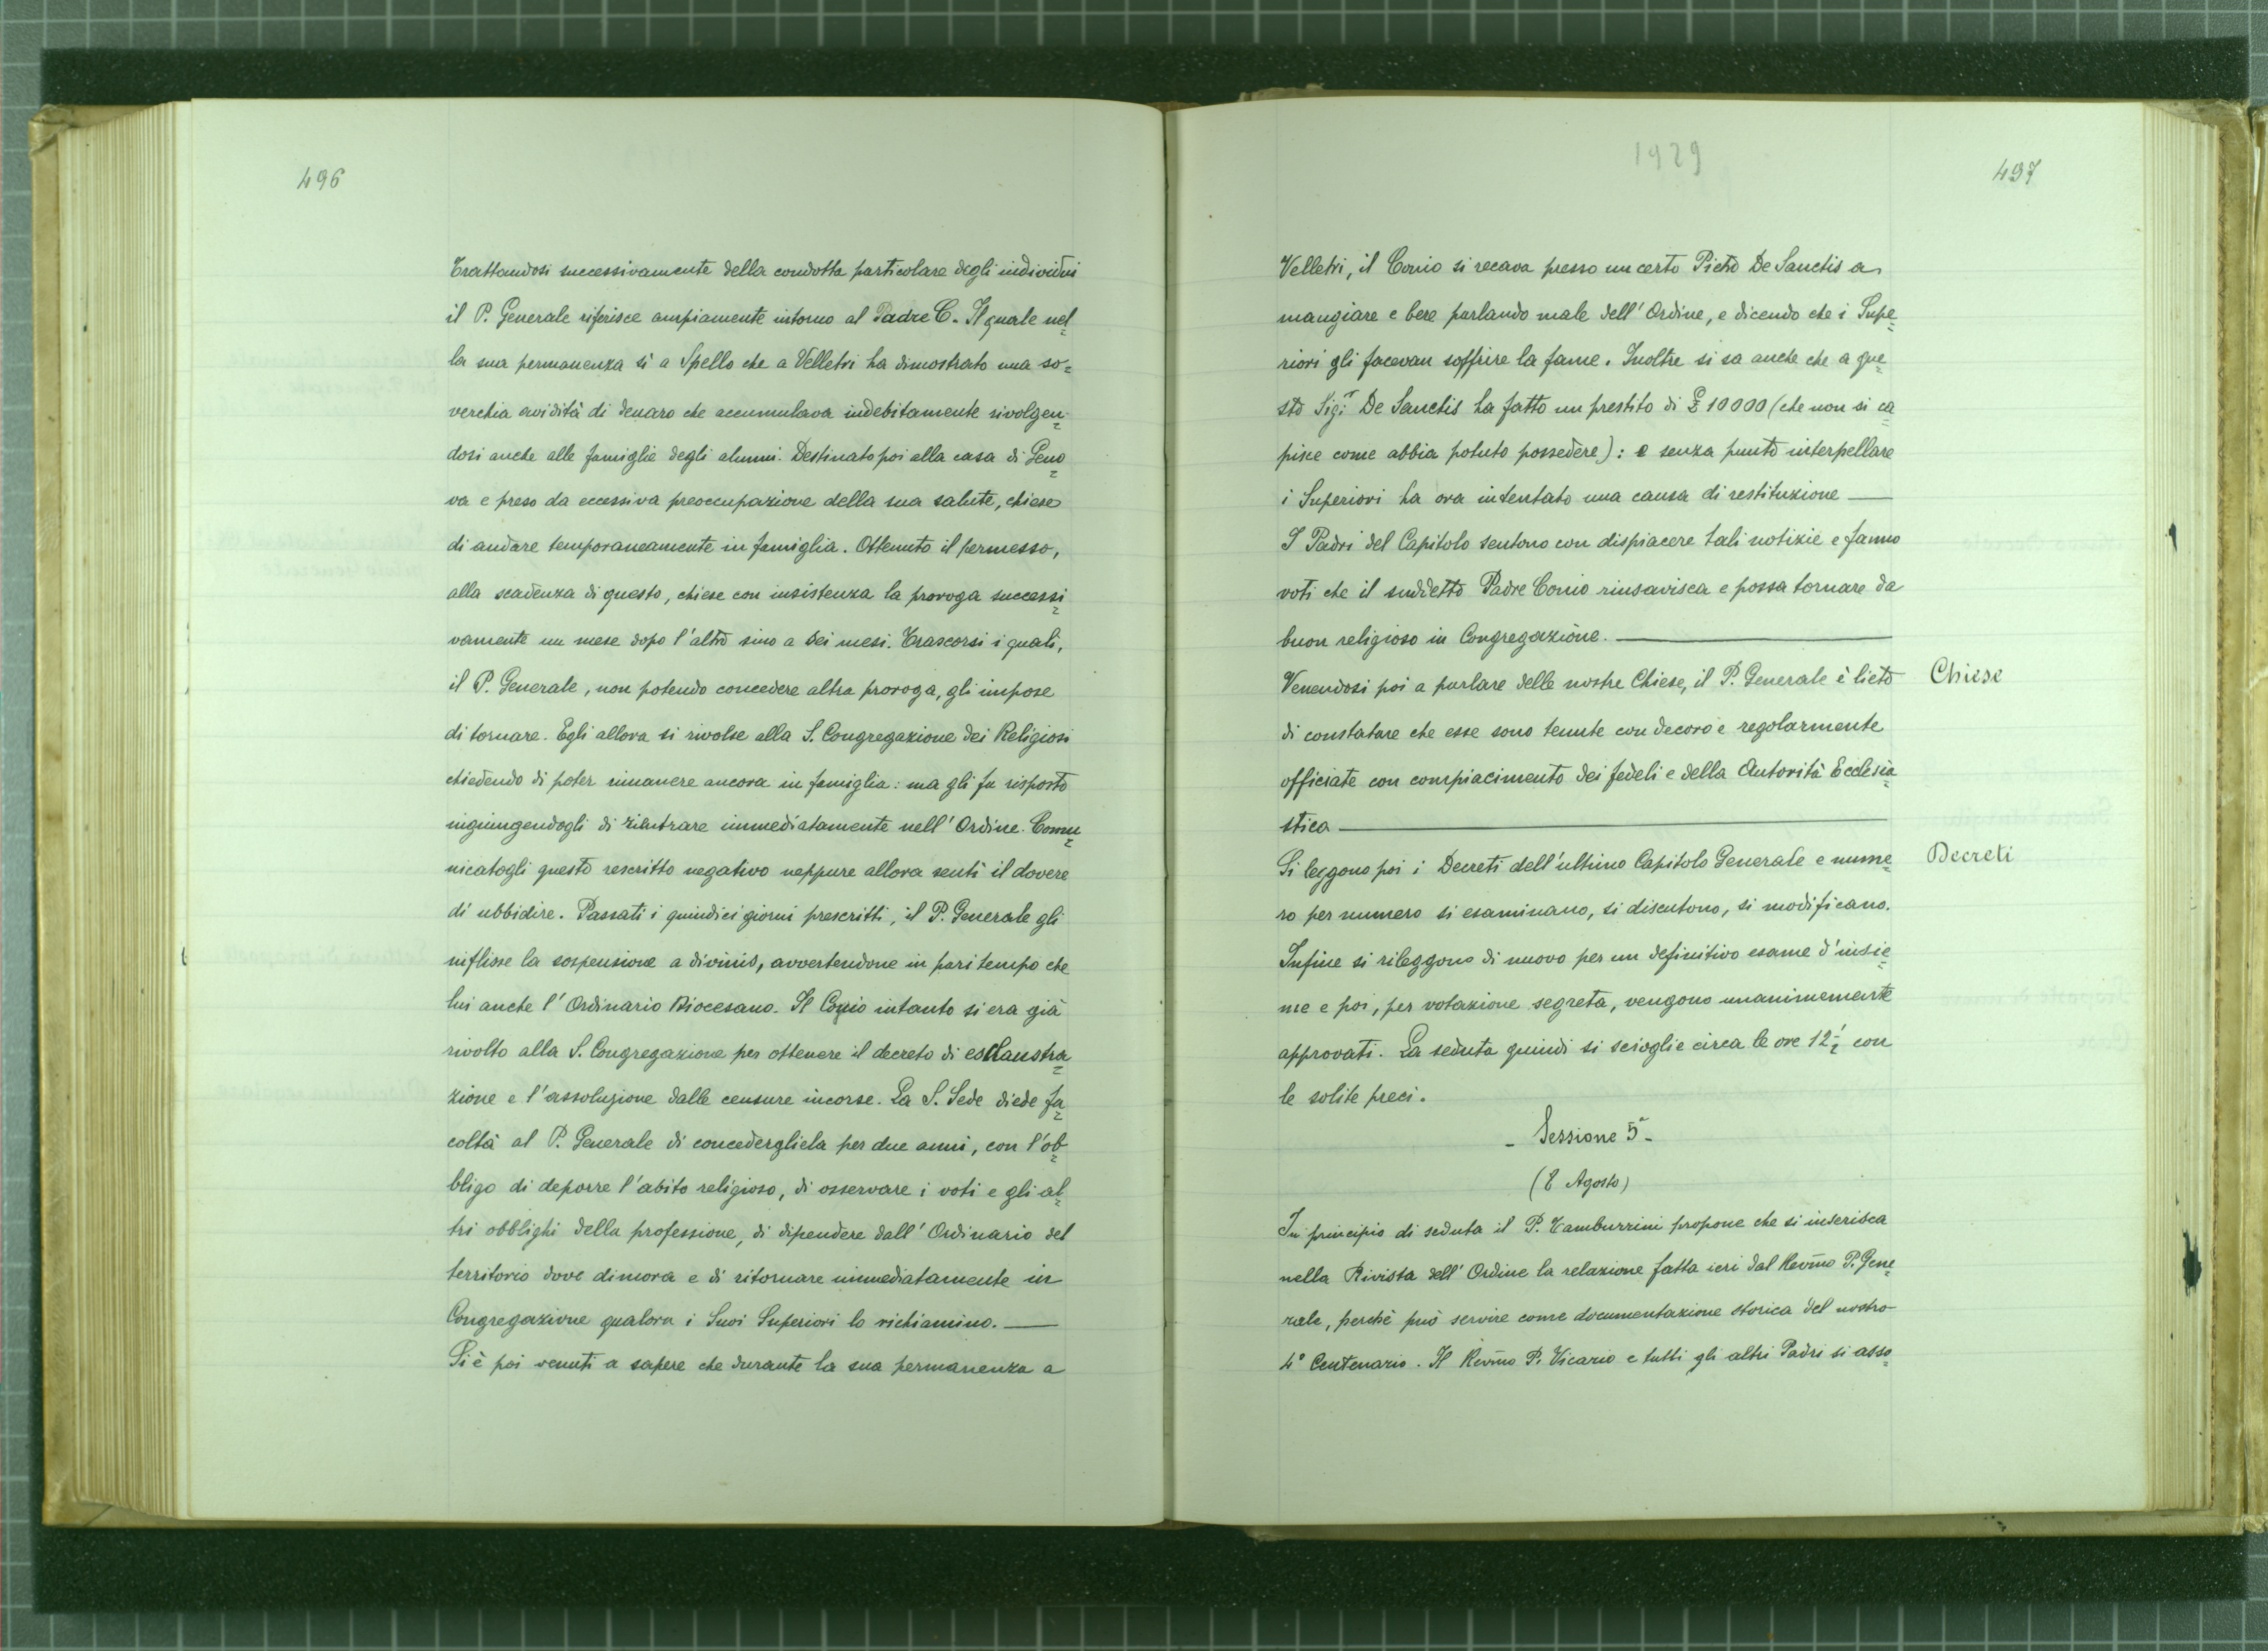 496
Trattandosi successivamente della condotta particolare degli individui
il P. Generale riferisce ampiamente intorno al Padre C. Il quale nel=
la sua permanenza sì a Spello che a Velletri ha dimostrato una so=
verchia avidità di denaro che accumulava indebitamente rivolgen=
dosi anche alle famiglie degli alunni. Destinato poi alla casa di Geno=
va e preso da eccessiva preoccupazione della sua salute, chiese
di andare temporaneamente in famiglia. Ottenuto il permesso,
alla scadenza di questo, chiese con insistenza la proroga successi=
vamente un mese dopo l'altro sino a sei mesi. Trascorsi i quali,
il P. Generale, non potendo concedere altra proroga, gli impose
di tornare. Egli allora si rivolse alla S. Congregazione dei Religiosi
chiedendo di poter rimanere ancora in famiglia: ma gli fu risposto
ingiungendogli di rientrare immediatamente nell'Ordine. Comu=
nicatogli questo rescritto negativo neppure allora sentì il dovere
di ubbidire. Passati i quindici giorni prescritti, il P. Generale gli
inflisse la sospensione a divinis, avvertendone in pari tempo che
lui anche l'Ordinario Diocesano. Il Conio intanto si era già
rivolto alla S. Congregazione per ottenere il decreto di esclaustra=
zione e l'assoluzione dalle censure incorse. La S. Sede diede fa=
coltà al P. Generale di concedergliela per due anni, con l'ob=
bligo di deporre l'abito religioso, di osservare i voti e gli al=
tri obblighi della professione, di dipendere dall'Ordinario del
territorio dove dimora e di ritornare immediatamente in
Congregazione qualora i Suoi Superiori lo richiamino. —
Si è poi venuti a sapere che durante la sua permanenza a
1929
497
Velletri, il Conio si recava presso un certo Pietro De Sanctis a
mangiare e bere parlando male dell'Ordine, e dicendo che i Supe=
riori gli facevan soffrire la fame. Inoltre si sa anche che a que=
sto Sig.r De Sanctis ha fatto un prestito di £ 10000 (che non si ca=
pisce come abbia potuto possedere): e senza punto interpellare
i Superiori ha ora intentato una causa di restituzione —
I Padri del Capitolo sentono con dispiacere tali notizie e fanno
voti che il suddetto Padre Conio rinsavisca e possa tornare da
buon religioso in Congregazione. —
Chiese
Venendosi poi a parlare delle nostre Chiese, il P. Generale è lieto
di constatare che esse sono tenute con decoro e regolarmente
officiate con compiacimento dei fedeli e della Autorità Ecclesia=
stica —
Decreti
Si leggono poi i Decreti dell'ultimo Capitolo Generale e nume=
ro per numero si esaminano, si discutono, si modificano.
Infine si rileggono di nuovo per un definitivo esame d'insie=
me e poi, per votazione segreta, vengono unanimemente
approvati. La seduta quindi si scioglie circa le ore 12½ con
le solite preci.
- Sessione 5ª -
(8 Agosto)
In principio di seduta il P. Tamburrini propone che si inserisca
nella Rivista dell'Ordine la relazione fatta ieri dal Rev̄mo P. Gene=
rale, perchè può servire come documentazione storica del nostro
4° Centenario. Il Rev̄mo P. Vicario e tutti gli altri Padri si asso=